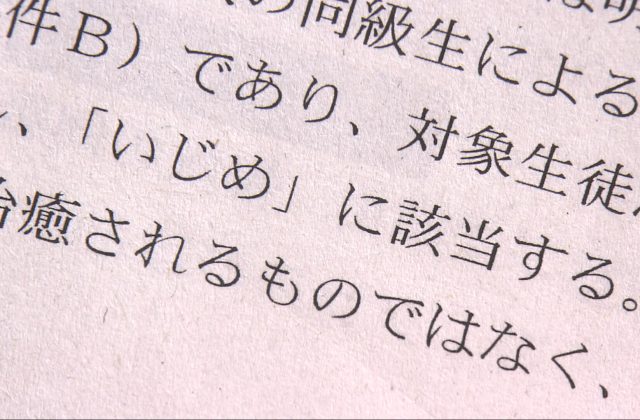 の同級生による
件B）であり、対象生徒
、「いじめ」に該当する。
治癒されるものではなく、